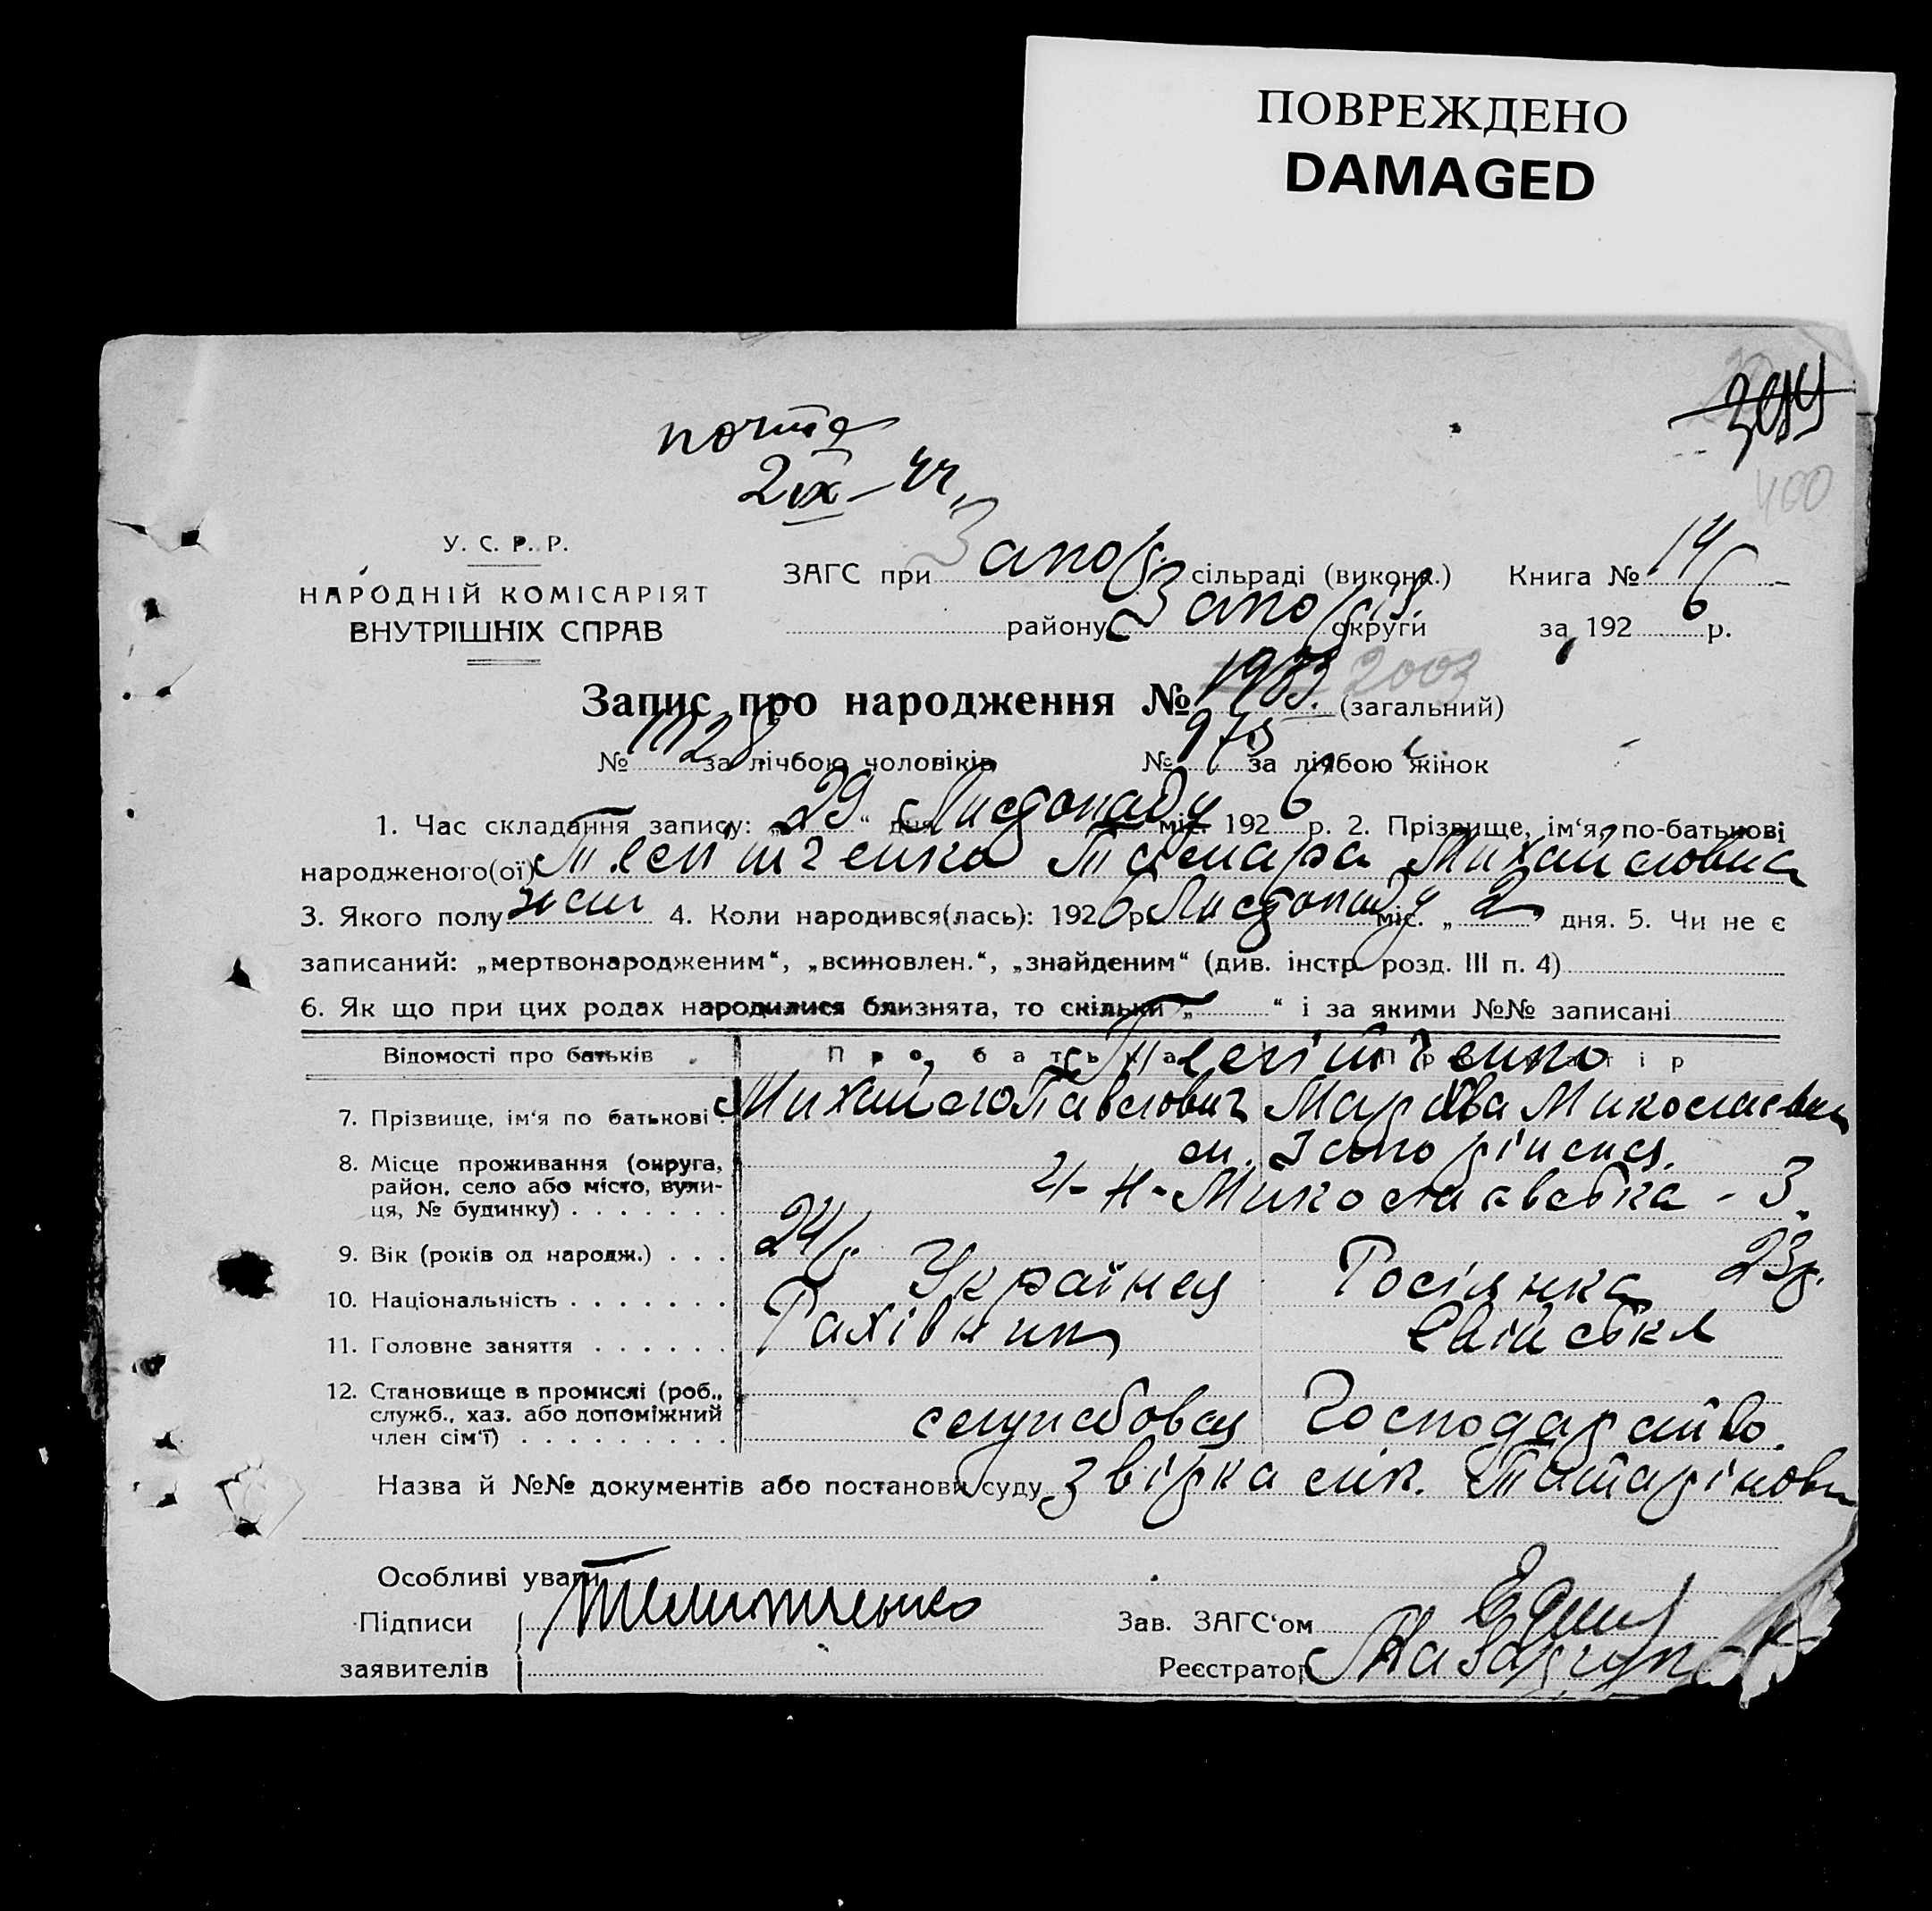 ПОВРЕЖДЕНО
DAMAGED
почта
2 IX – 44.
400
У. С. Р. Р.
НАРОДНІЙ КОМІСАРІЯТ
ВНУТРІШНІХ СПРАВ
ЗАГС при Запор. сільраді (викона.) Книга № 14
району Запоріз. округи за 192 6 р.
Запис про народження № 2003 (загальний)
№ 1028 за лічбою чоловіків № 975 за лічбою жінок
1. Час складання запису: „ 29 “ дня Листопаду міс. 192 6 р. 2. Прізвище, ім‘я, по-батькові
народженого(ої) Телітченко Тамара Михайловна
3. Якого полу жін 4. Коли народився(лась): 192 6 р Листопаду міс. „ 2 дня. 5. Чи не є
записаний: „мертвонародженим“, „всиновлен.“, „знайденим“ (див. інстр. розд. III п. 4)
6. Як що при цих родах народилися близнята, то скільки „ “ і за якими №№ записані
Відомості про батьків Про батька Про матір
Телітченко
7. Прізвище, ім‘я по батькові. Михайло Павлович Микола­евна
8. Місце проживання (округа, район, село або місто, вулиця, № будинку) м. Запоріжжя
Н-Миколаевська - 3.
9. Вік (років од народж.) 24 р. 23 р.
10. Національність Українец Росіянка
11. Головне заняття Рахівник Свійське
12. Становище в промислі (роб., служб., хаз. або допоміжний член сім‘ї) службовец Господарство.
Назва й №№ документів або постанови суду Звірка лік. Татарінови
Особливі уваги
Підписи заявителів Телитченко
Зав. ЗАГС‘ом
Реєстратор